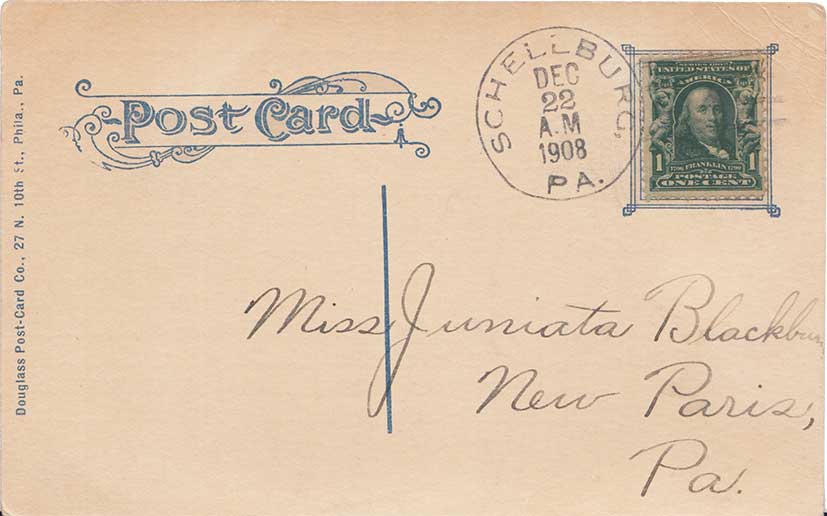 Post Card
SCHELLBURG,
DEC
22
A.M
1908
PA.
SERIES 1902
UNITED STATES OF
AMERICA
1 1
1706 FRANKLIN 1790
POSTAGE
ONE CENT
Douglass Post-Card Co., 27 N. 10th St., Phila., Pa.
Miss Juniata Blackburn
New Paris,
Pa.